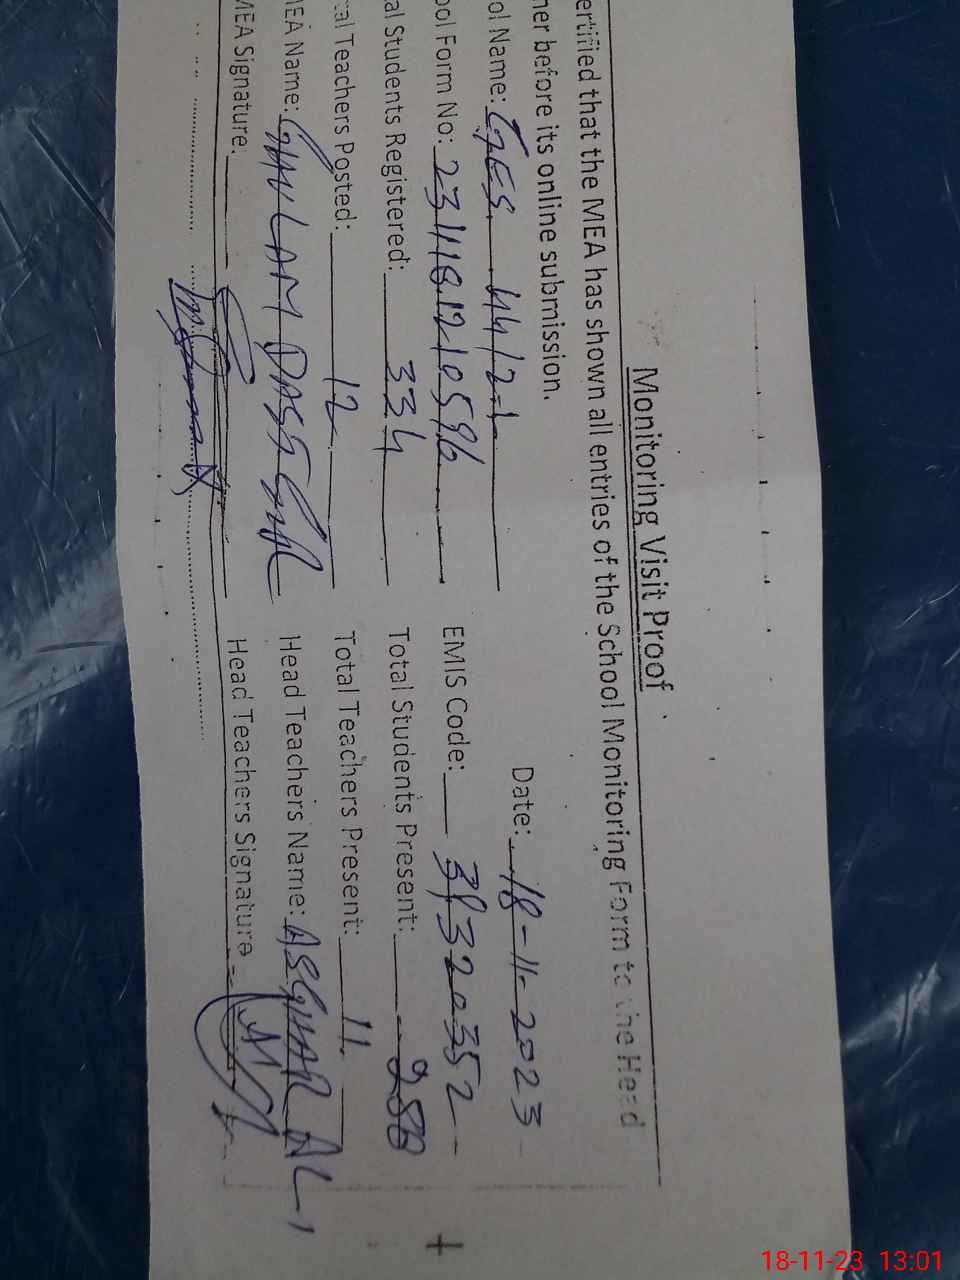 Monitoring Visit Proof
ertified that the MEA has shown all entries of the School Monitoring Form to the Head
her before its online submission.
Date: 18-11-2023
ol Name: GES 44/2-L
ool Form No: EMIS Code:
al Students Registered: 334 Total Students Present: 288
tal Teachers Posted: 12 Total Teachers Present: 11
MEA Name: GHULAM DASTGIR Head Teachers Name: ASGHAR ALI
MEA Signature: Head Teachers Signature
18-11-23 13:01